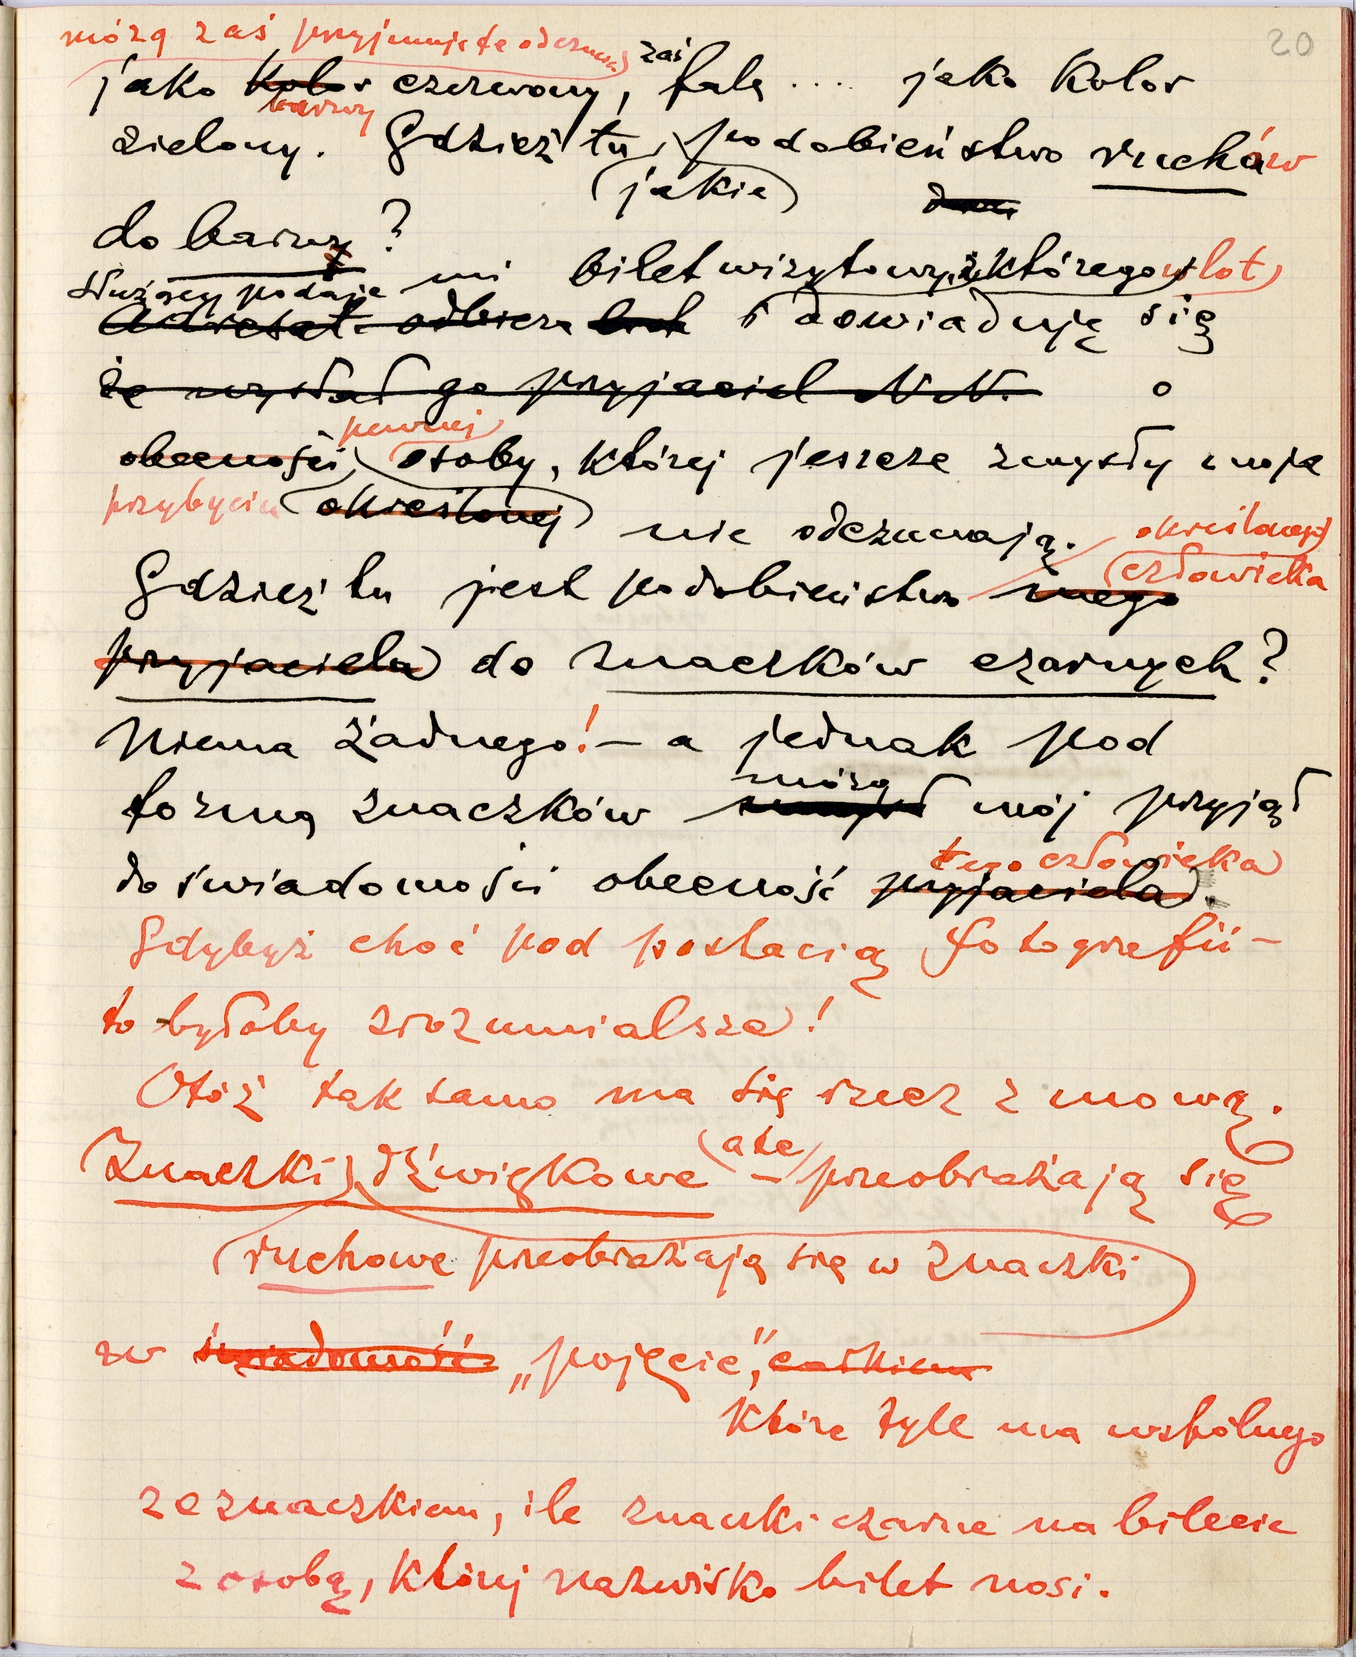 20
mózg zaś przyjmuje te odczucia zaś
jako kolor czerwony, falę .... jako kolor
barwy
zielony. Gdzież tu podobieństwo ruchów
jakie
do barwy?
Służący podaje mi bilet wizytowy, z którego wlot
Adresat odbiera i dowiaduję się
że wysłał go przyjaciel N.N. o
pewnej
obecności osoby, której jeszcze zmysły moje
przybyciu określonej nie odczuwają. określonego
człowieka
Gdzież tu jest podobieństwo mego
przyjaciela do znaczków czarnych?
Niema żadnego! – a jednak pod
mózg
formą znaczków umysł mój przyjął
tego człowieka
do świadomości obecność przyjaciela.
Gdybyż choć pod postacią fotografii –
to byłoby zrozumialsze!
Otóż tak samo ma się rzecz z mową.
(a te)
Znaczki dźwiękowe – przeobrażają się
ruchowe przeobrażają się w znaczki
w świadomość „pojęcie”, całkiem
które tyle ma wspólnego
ze znaczkiem, ile znaczki czarne na bilecie
z osobą, której nazwisko bilet nosi.